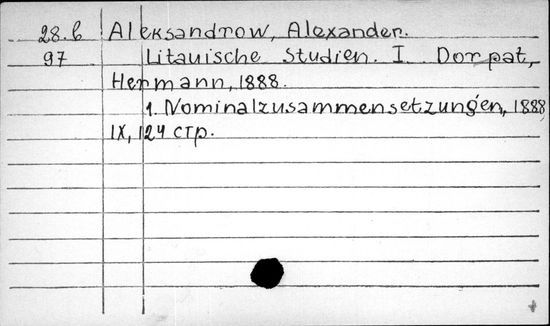 28.b Aleksandrow, Alexander.
97 Litauische Studien. I. Dorpat,
Hermann, 1888.
1. Nominalzusammensetzungen, 1888
IX, 124 стр.